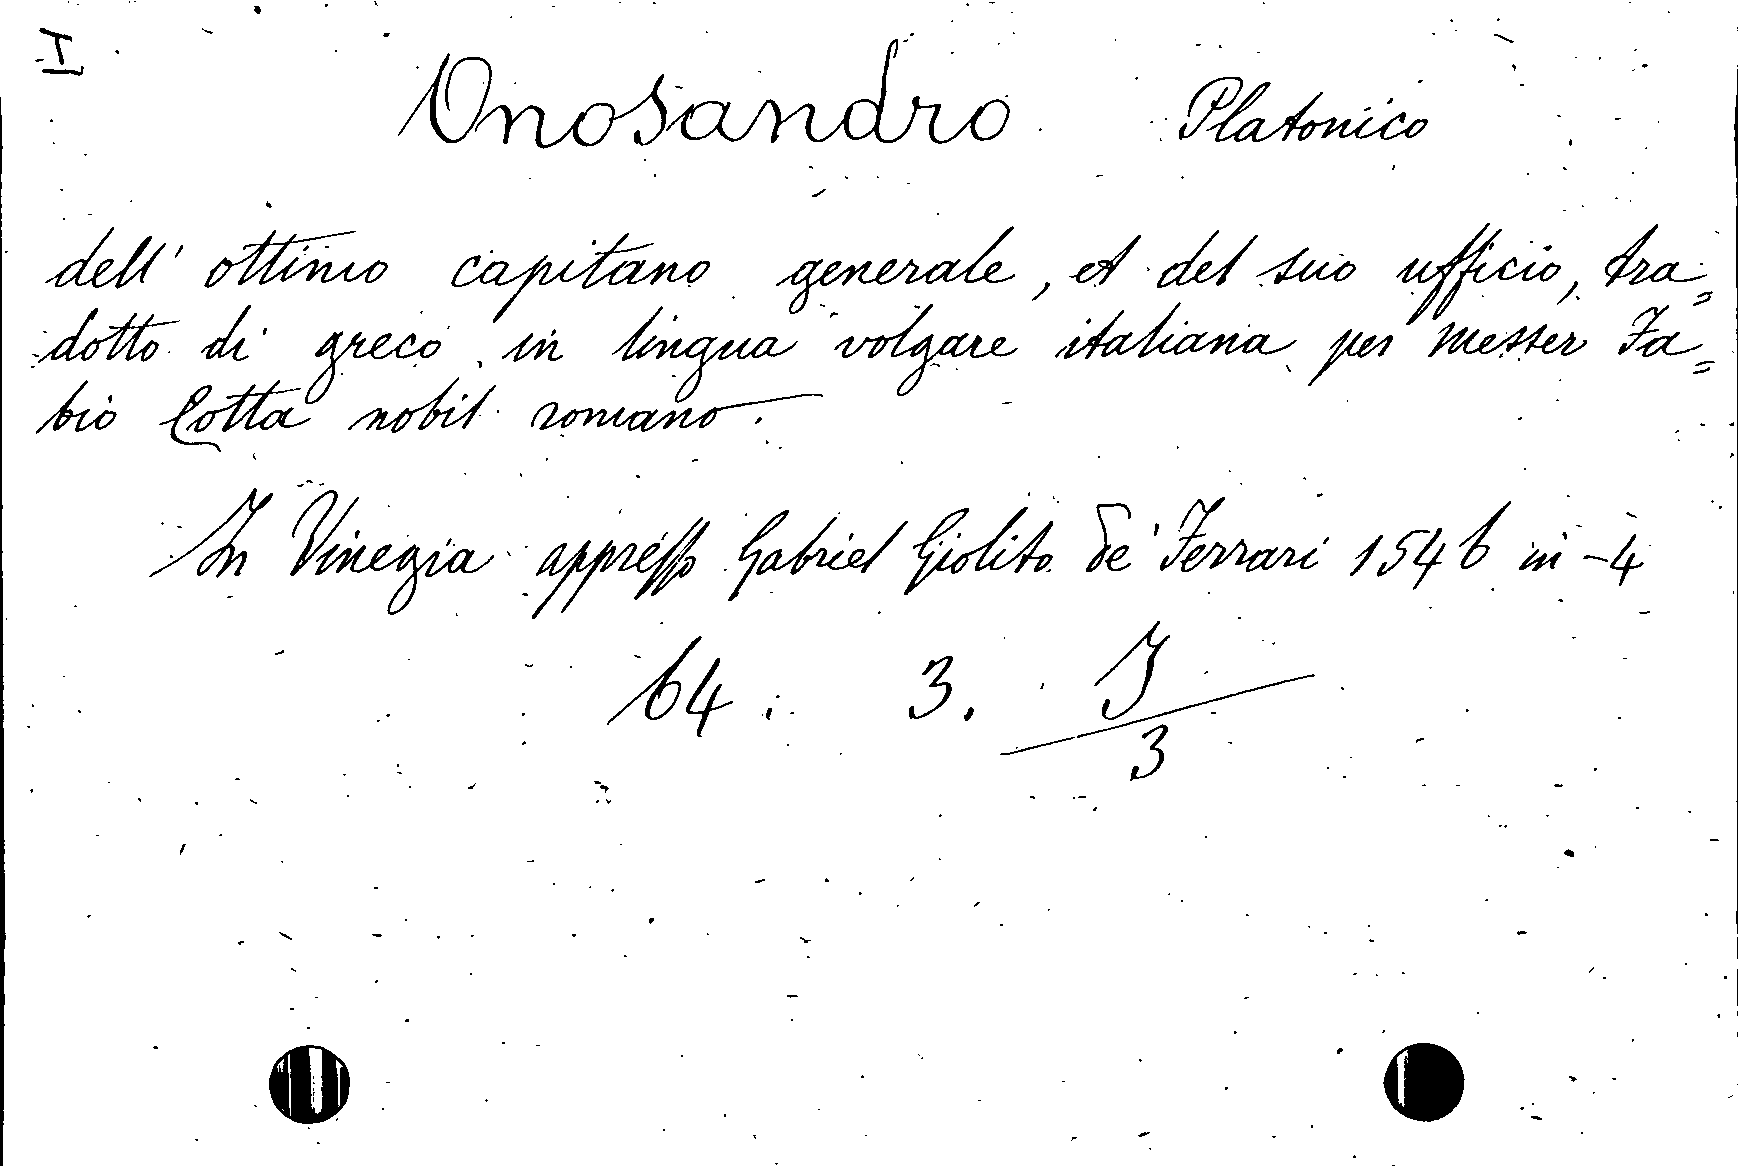 I
Onosandro Platonico
dell' ottimo capitano generale, et del suo ufficio, tra=
dotto di greco in lingua volgare italiana per messer Fa=
bio Cotta nobil romano.
In Vinegia appresso Gabriel Giolito de' Ferrari 1546 in-4
64. 3. I/3